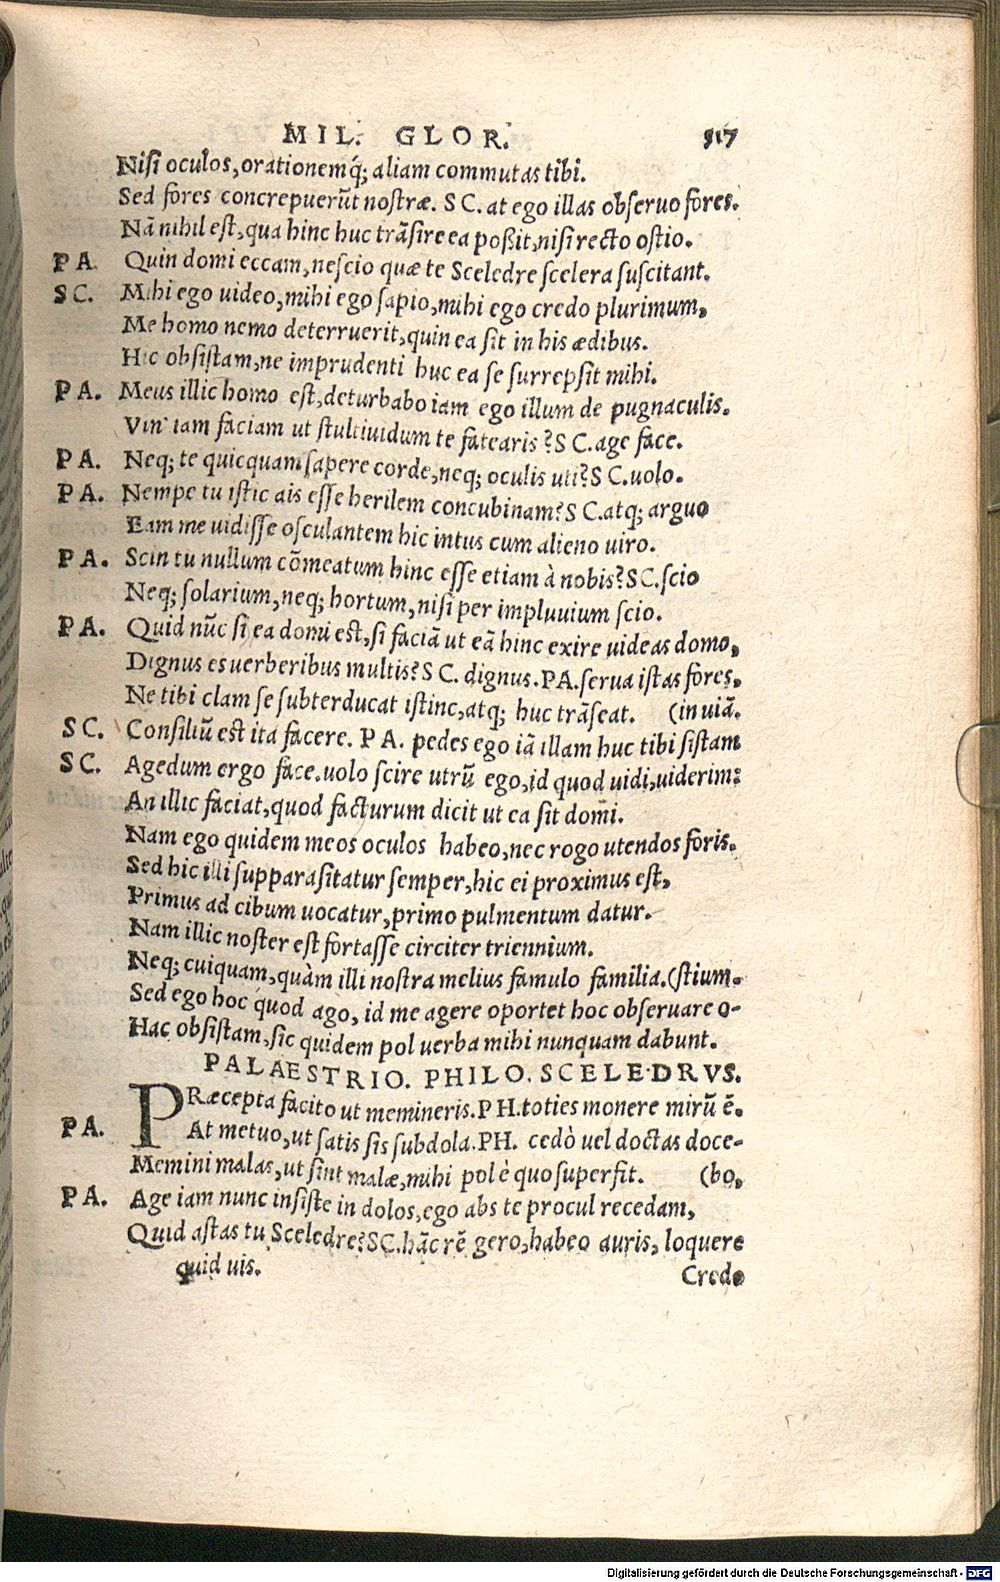 MIL. GLOR. 317
Nisi oculos, orationemq́; aliam commutas tibi.
Sed fores concrepuerũt nostræ. SC. at ego illas obseruo fores.
Nã nihil est, qua hinc huc trãsire ea poßit, nisi recto ostio.
PA. Quin domi eccam, nescio quæ te Sceledre scelera suscitant.
SC. Mihi ego uideo, mihi ego sapio, mihi ego credo plurimum,
Me homo nemo deterruerit, quin ea sit in his ædibus.
Hic obsistam, ne imprudenti huc ea se surrepsit mihi.
PA. Meus illic homo est, deturbabo iam ego illum de pugnaculis.
Vin' iam faciam ut stultiuidum te fatearis? SC. age face.
PA. Neq; te quicquam sapere corde, neq; oculis uti? SC. uolo.
PA. Nempe tu istic ais esse herilem concubinam? SC. atq; arguo
Eam me uidisse osculantem hic intus cum alieno uiro.
PA. Scin tu nullum cõmeatum hinc esse etiam à nobis? SC. scio
Neq; solarium, neq; hortum, nisi per impluuium scio.
PA. Quid nũc si ea domi est, si faciã ut eã hinc exire uideas domo,
Dignus es uerberibus multis? SC. dignus. PA. serua istas fores,
Ne tibi clam se subterducat istinc, atq; huc trãseat. (in uiã.
SC. Consiliũ est ita facere. PA. pedes ego iã illam huc tibi sistam
SC. Agedum ergo face. uolo scire utrũ ego, id quod uidi, uiderim:
An illic faciat, quod facturum dicit ut ea sit domi.
Nam ego quidem meos oculos habeo, nec rogo utendos foris.
Sed hic illi supparasitatur semper, hic ei proximus est,
Primus ad cibum uocatur, primo pulmentum datur.
Nam illic noster est fortasse circiter triennium.
Neq; cuiquam, quàm illi nostra melius famulo familia. (stium.
Sed ego hoc quod ago, id me agere oportet hoc obseruare o-
Hac obsistam, sic quidem pol uerba mihi nunquam dabunt.
PALAESTRIO. PHILO. SCELEDRVS.
PRæcepta facito ut memineris. PH. toties monere mirũ ẽ.
PA. At metuo, ut satis sis subdola. PH. cedò uel doctas doce-
Memini malas, ut sint malæ, mihi pol è quo superfit. (bo,
PA. Age iam nunc insiste in dolos, ego abs te procul recedam,
Quid astas tu Sceledre? SC. hãc rẽ gero, habeo auris, loquere
quid uis. Credo
Digitalisierung gefördert durch die Deutsche Forschungsgemeinschaft - DFG